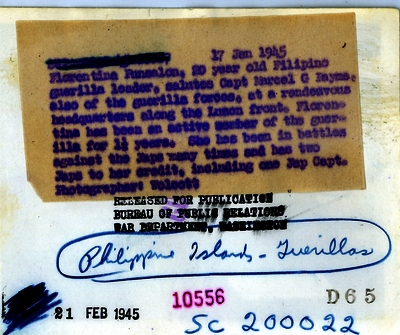 17 Jan 1945
Florentina Punsalon, 20 year old Filipino
guerilla leader, salutes Capt Marcel G Reyes,
also of the guerilla forces, at a rendezvous
headquarters along the Luzon front. Floren-
tina has been an active member of the guer-
illa for 1½ years. She has been in battles
against the Japs many times and has two
Japs to her credit, including one Jap Capt.
Photographer: Wolcott
RELEASED FOR PUBLICATION
BUREAU OF PUBLIC RELATIONS
WAR DEPARTMENT, WASHINGTON
Philippine Islands - Guerillas
21 FEB 1945
10556
D65
SC 200022